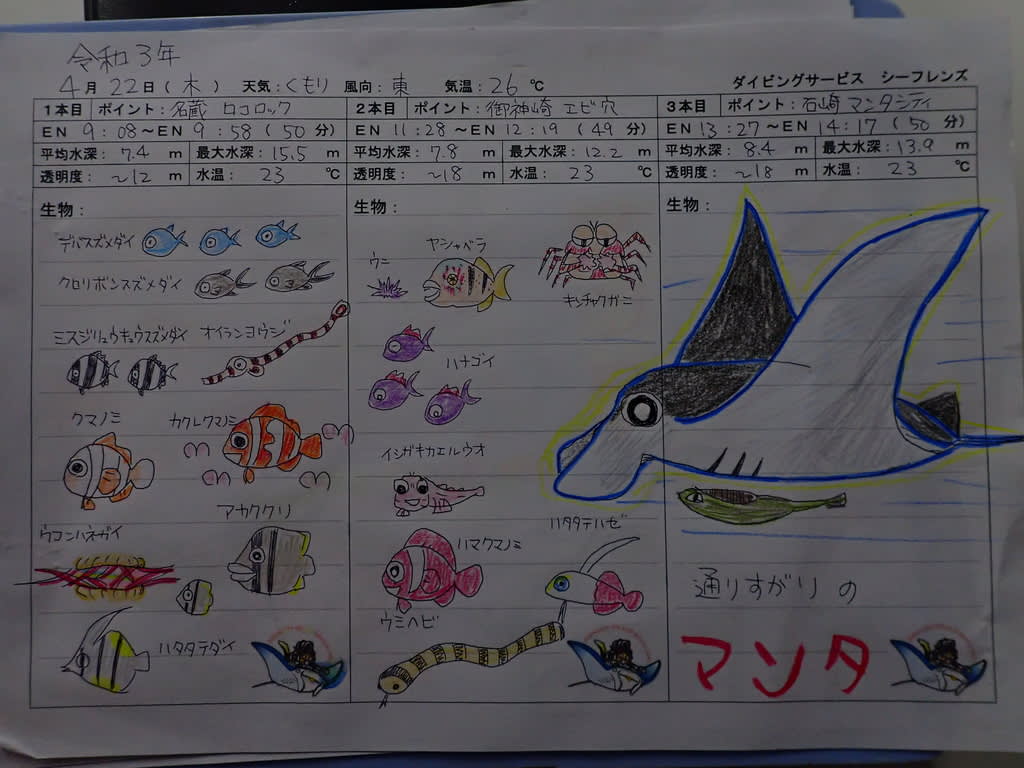 令和3年
4月22日(木) 天気:くもり 風向:東 気温:26℃ ダイビングサービス シーフレンズ
1本目 ポイント:名蔵 ロコロック
EN 9:08～EN 9:58(50分)
平均水深:7.4 m 最大水深:15.5 m
透明度:～12 m 水温:23 ℃
生物:
デバスズメダイ
クロリボンスズメダイ
ミスジリュウキュウスズメダイ オイランヨウジ
クマノミ カクレクマノミ
アカククリ
ウコンハネガイ
ハタタテダイ
2本目 ポイント:御神崎 エビ穴
EN 11:28～EN 12:19(49分)
平均水深:7.8 m 最大水深:12.2 m
透明度:～18 m 水温:23 ℃
生物:
ヤシャベラ
ウニ
キンチャクガニ
ハナゴイ
イシガキカエルウオ
ハタタテハゼ
ハマクマノミ
ウミヘビ
3本目 ポイント:石崎 マンタシティ
EN 13:27～EN 14:17(50分)
平均水深:8.4 m 最大水深:13.9 m
透明度:～18 m 水温:23 ℃
生物:
通りすがりの
マンタ